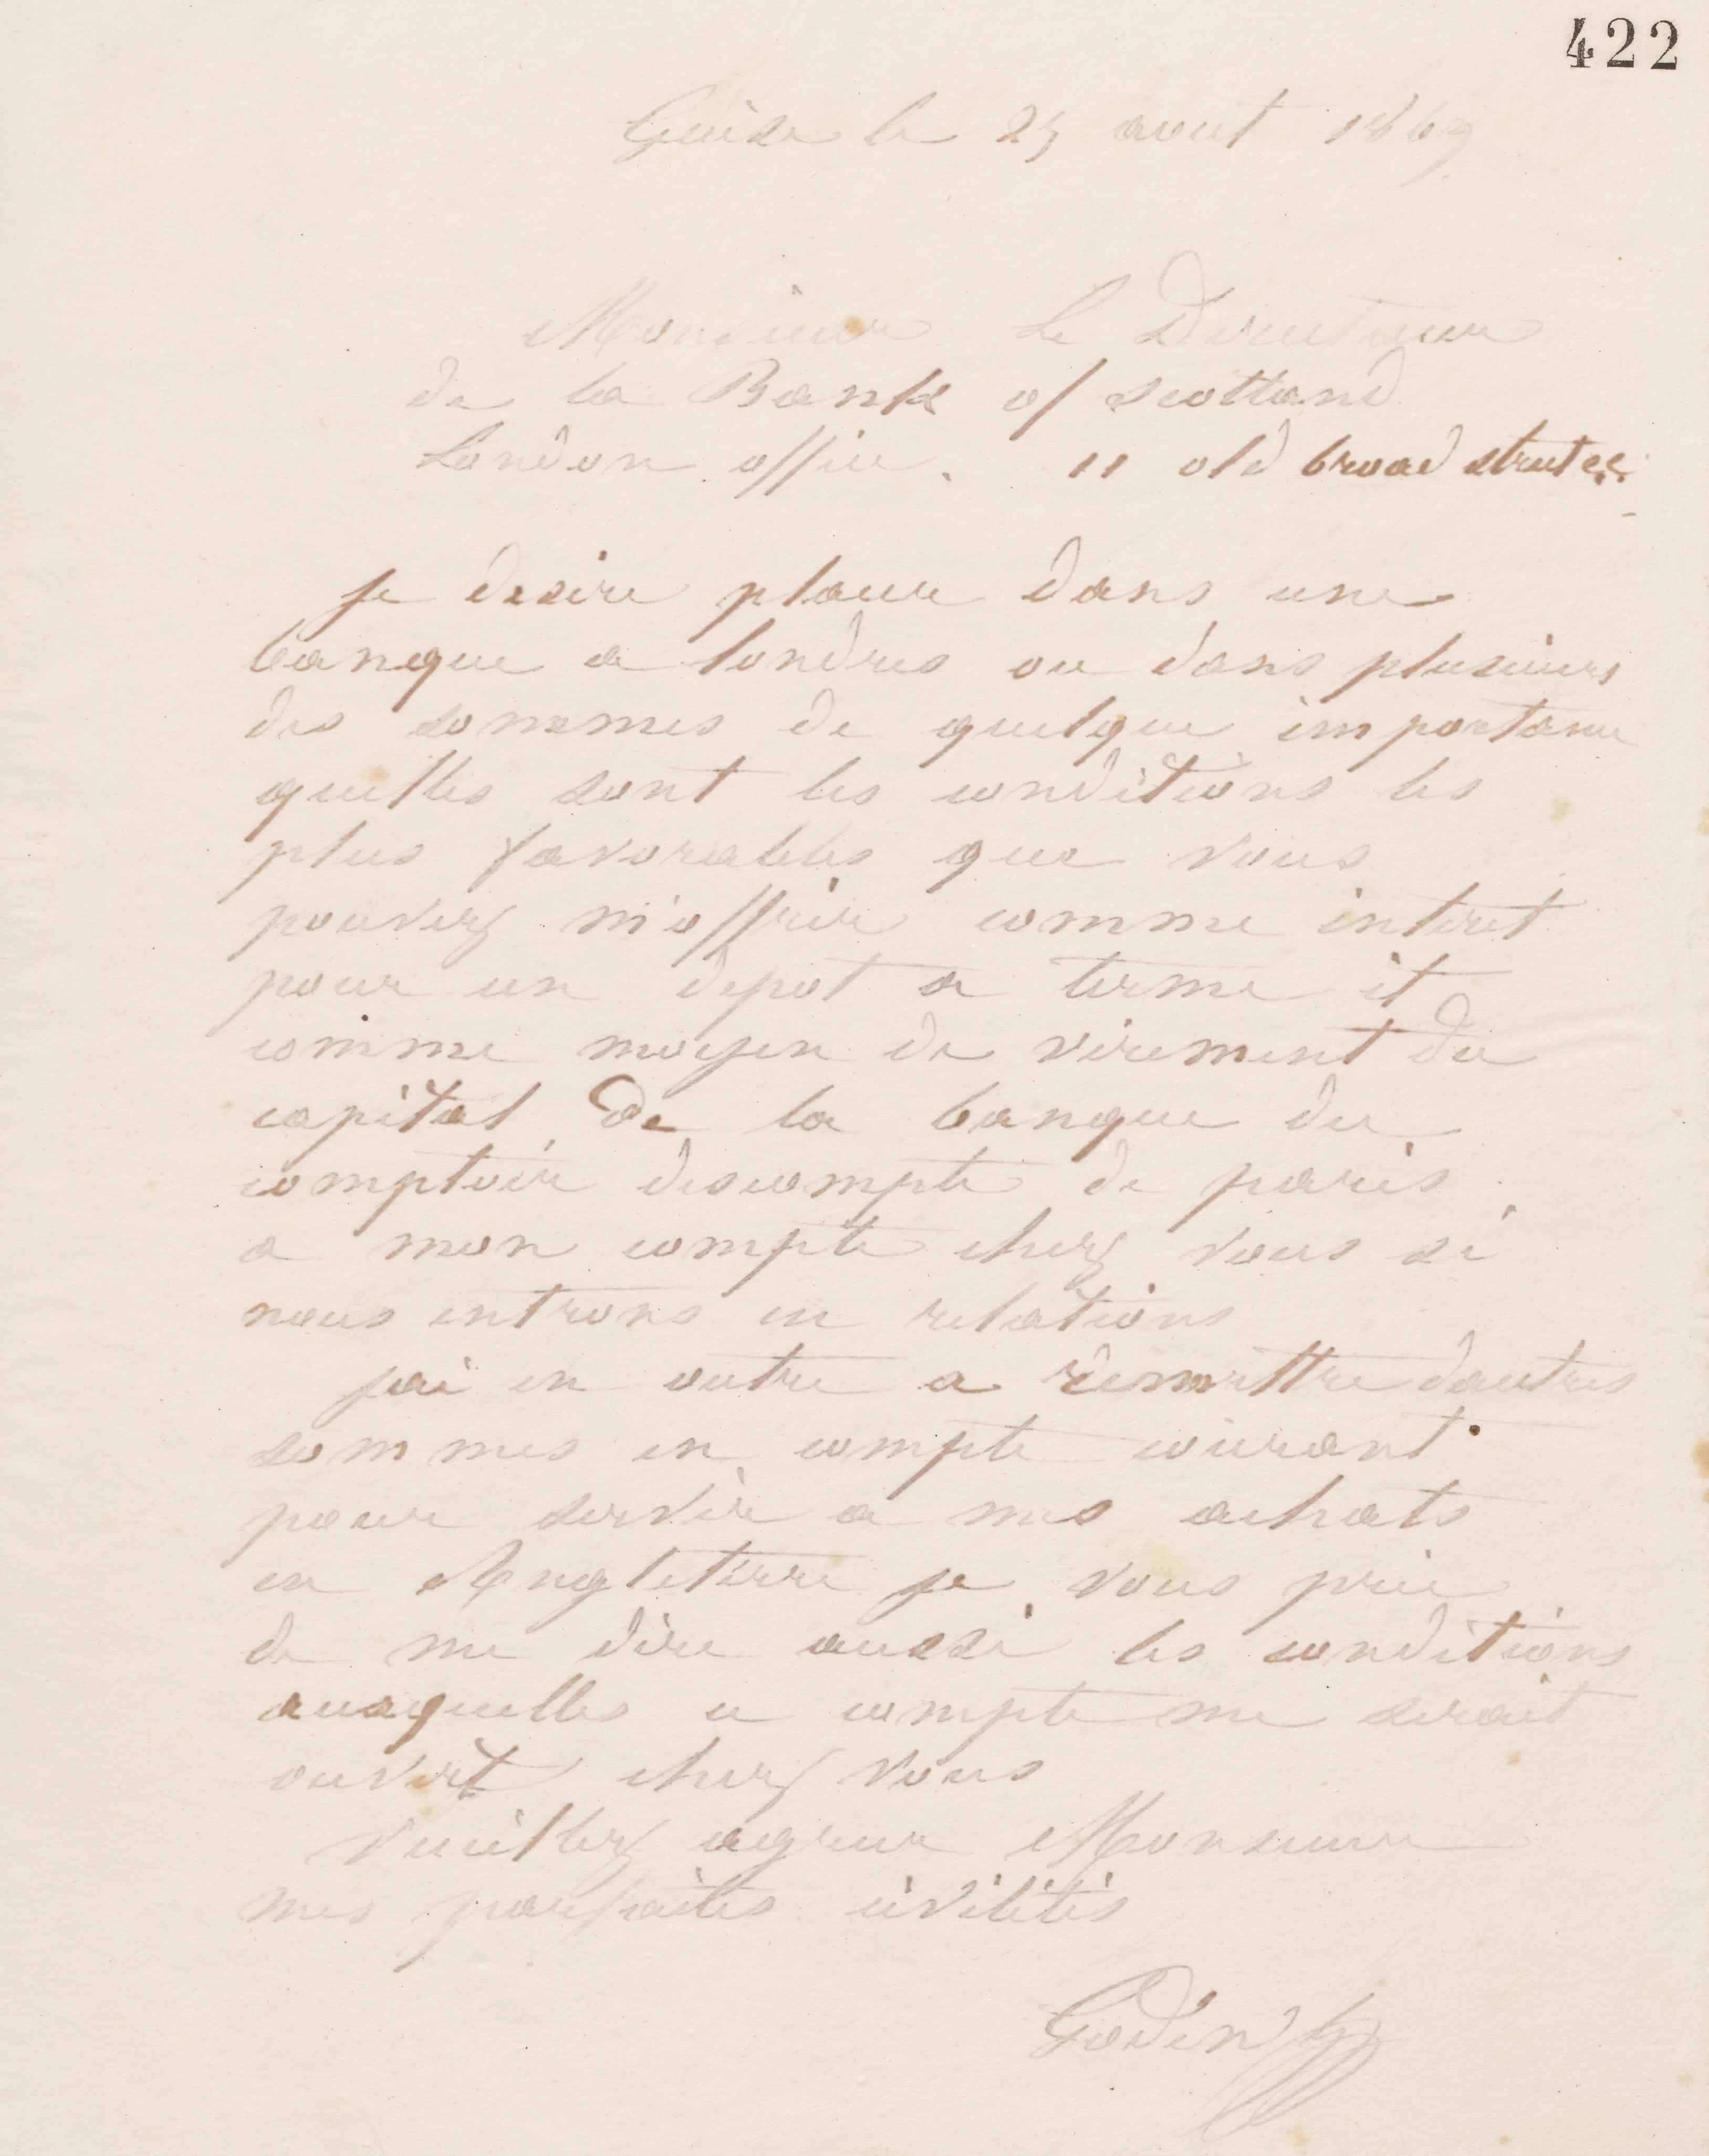 422
Guise le 25 aout 1869
Monsieur Le Directeur
de la Bank of scotland
London office. 11 old broad street ec.
je desire placer dans une
banque a londres ou dans plusieurs
des sommes de quelque importance
quelles sont les conditions les
plus favorables que vous
pouvez m'offrir comme interet
pour un depot a terme et
comme moyen de virement du
capital de la banque du
comptoir descompte de paris
a mon compte chez vous si
nous entrons en relations
jai en outre a remettre dautres
sommes en compte courant
pour servir a mes achats
en Angleterre je vous prie
de me dire aussi les conditions
auxquelles ce compte me serait
ouvert chez vous
veuillez agreer Monsieur
mes parfaites civilités
Godin